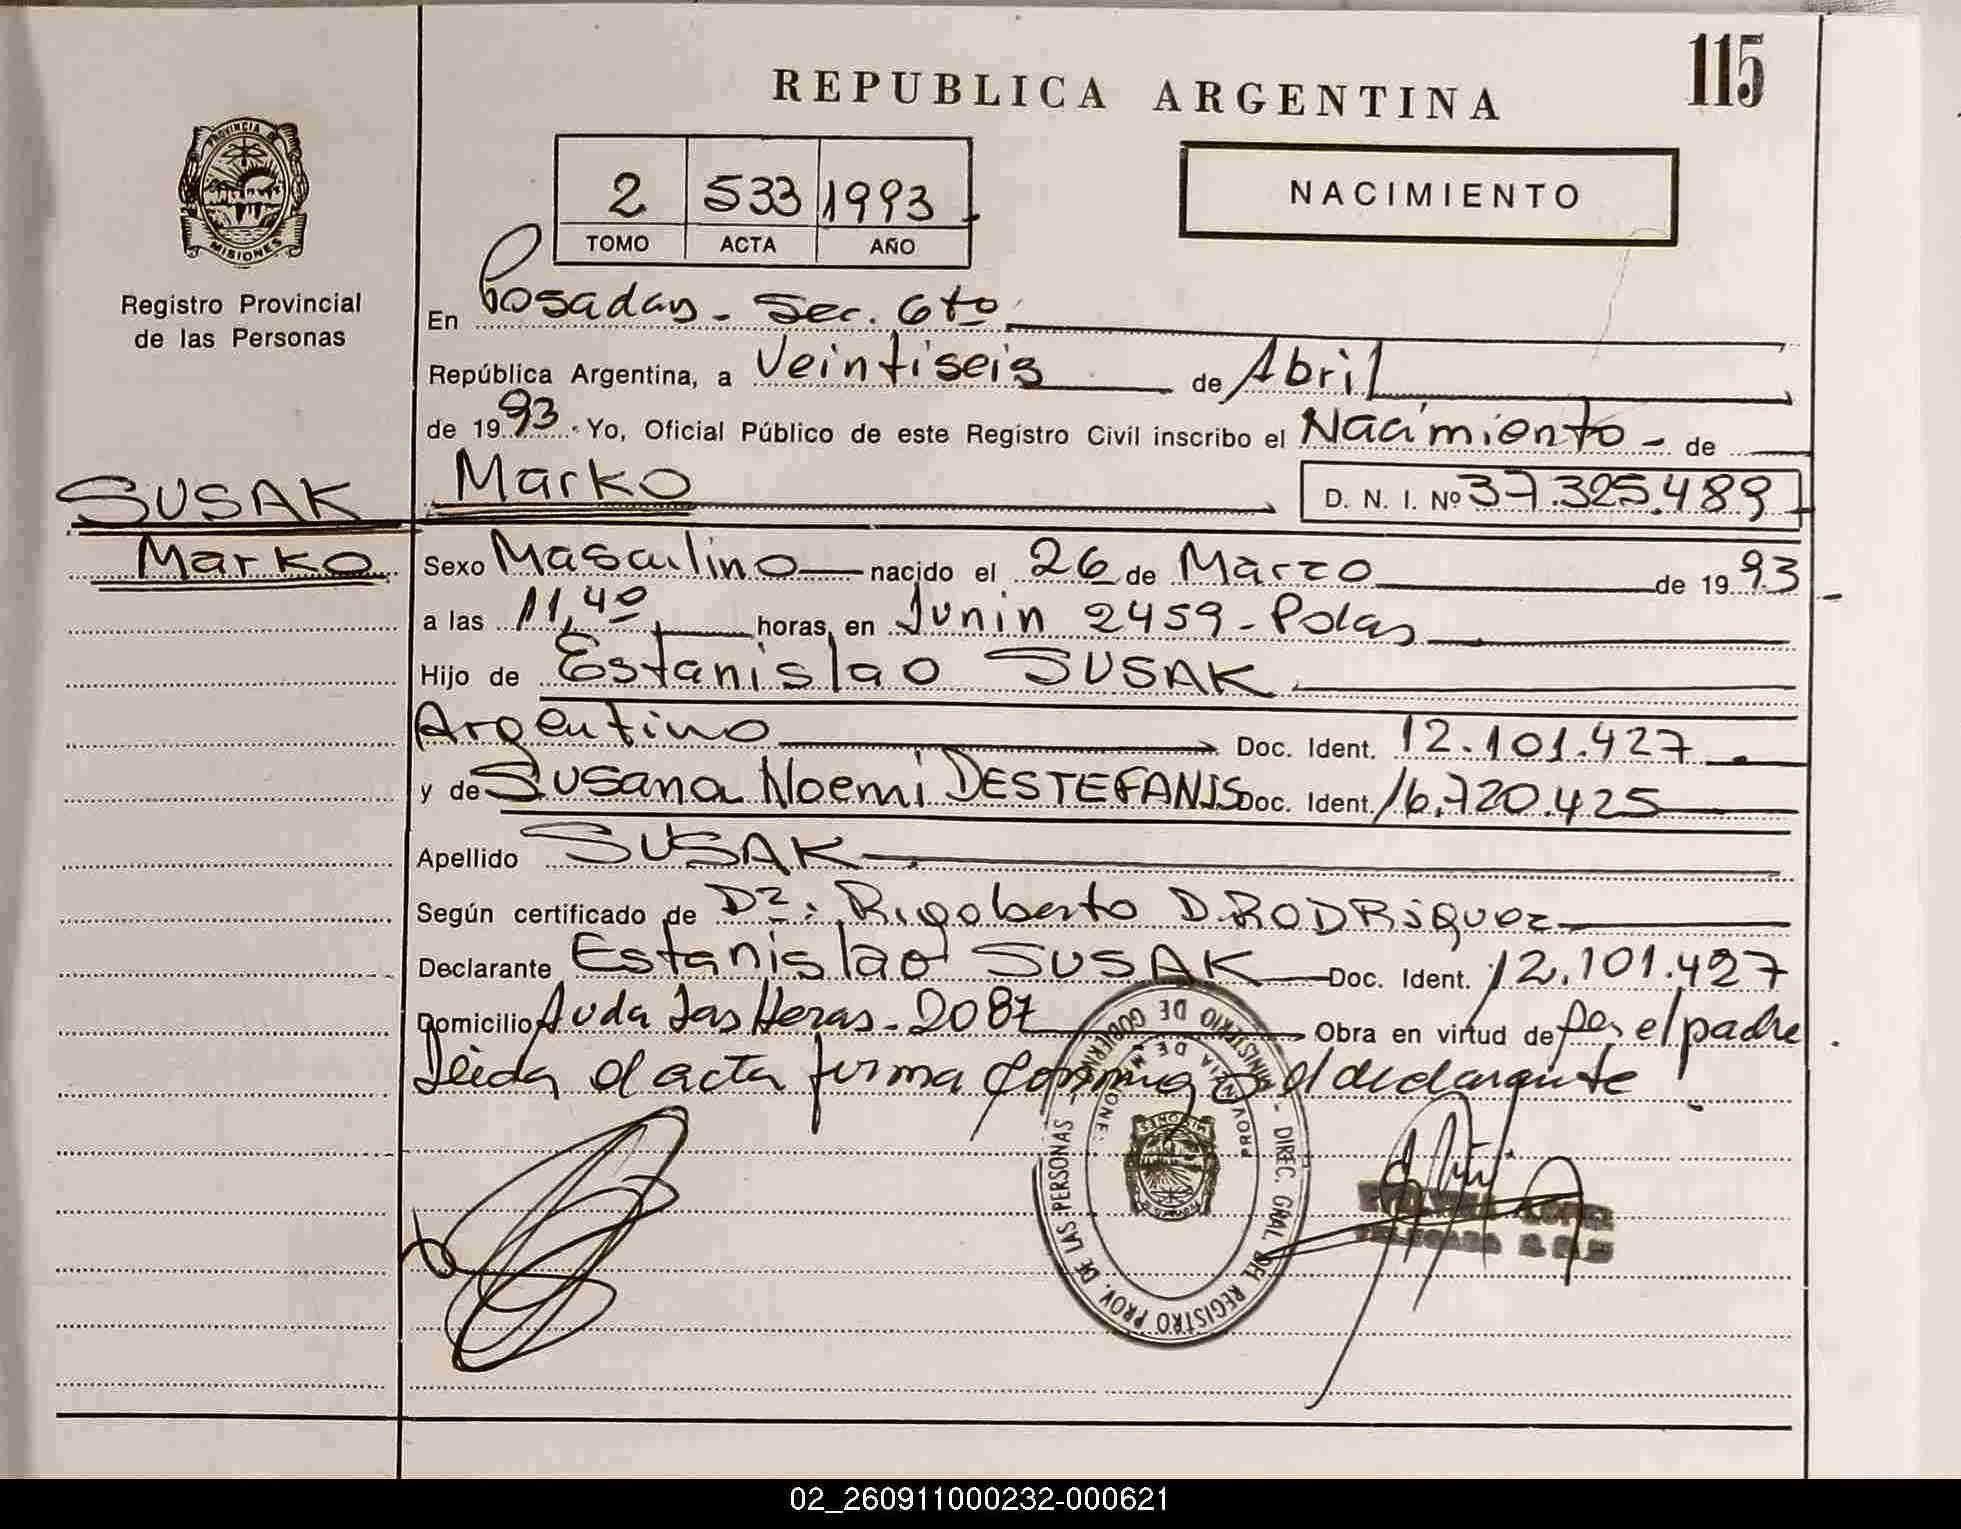 115
REPUBLICA ARGENTINA
PROVINCIA DE
MISIONES
Registro Provincial
de las Personas
2 533 1993
TOMO ACTA AÑO
NACIMIENTO
En Posadas - Sec. 6to
República Argentina, a Veintiseis de Abril
de 1993. Yo, Oficial Público de este Registro Civil inscribo el Nacimiento - de
SUSAK Marko D. N. I. Nº 37.325.489
Marko Sexo Masculino nacido el 26 de Marzo de 1993
a las 11,40 horas, en Junin 2459 - Pdas
Hijo de Estanislao SUSAK
Argentino Doc. Ident. 12.101.427
y de Susana Noemi DESTEFANIS Doc. Ident. 16.720.425
Apellido SUSAK
Según certificado de Dr. Rigoberto D. RODRiguez
Declarante Estanislao SUSAK Doc. Ident. 12.101.427
Domicilio Avda Las Heras - 2087 Obra en virtud de ser el padre
Leida el acta firma conmigo el declarante
MINISTERIO DE GOBIERNO - DIREC. GRAL. DEL REGISTRO PROV. DE LAS PERSONAS
PROVINCIA DE MISIONES
02_260911000232-000621